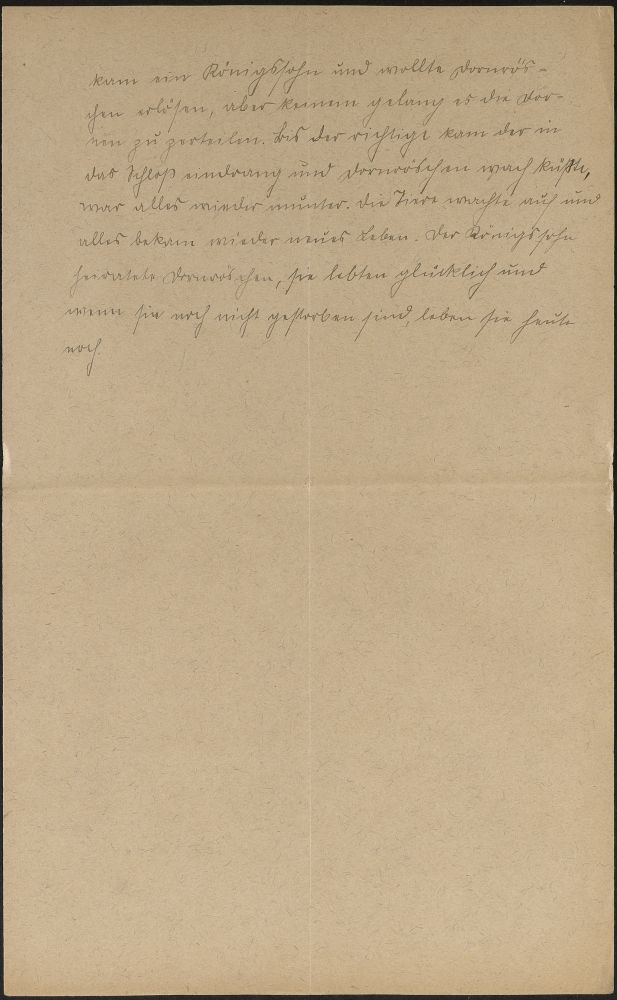 kam ein Königssohn und wollte Dornrös-
chen erlösen, aber keinem gelang es die Dor-
nen zu zerteilen. Bis der richtige kam der in
das Schloß eindrang und Dornröschen wach küßte,
war alles wieder munter. Die Tiere wachte auf und
alles bekam wieder neues Leben. Der Königssohn
heiratete Dornröschen, sie lebten glücklich und
wenn sie noch nicht gestorben sind, leben sie heute
noch.